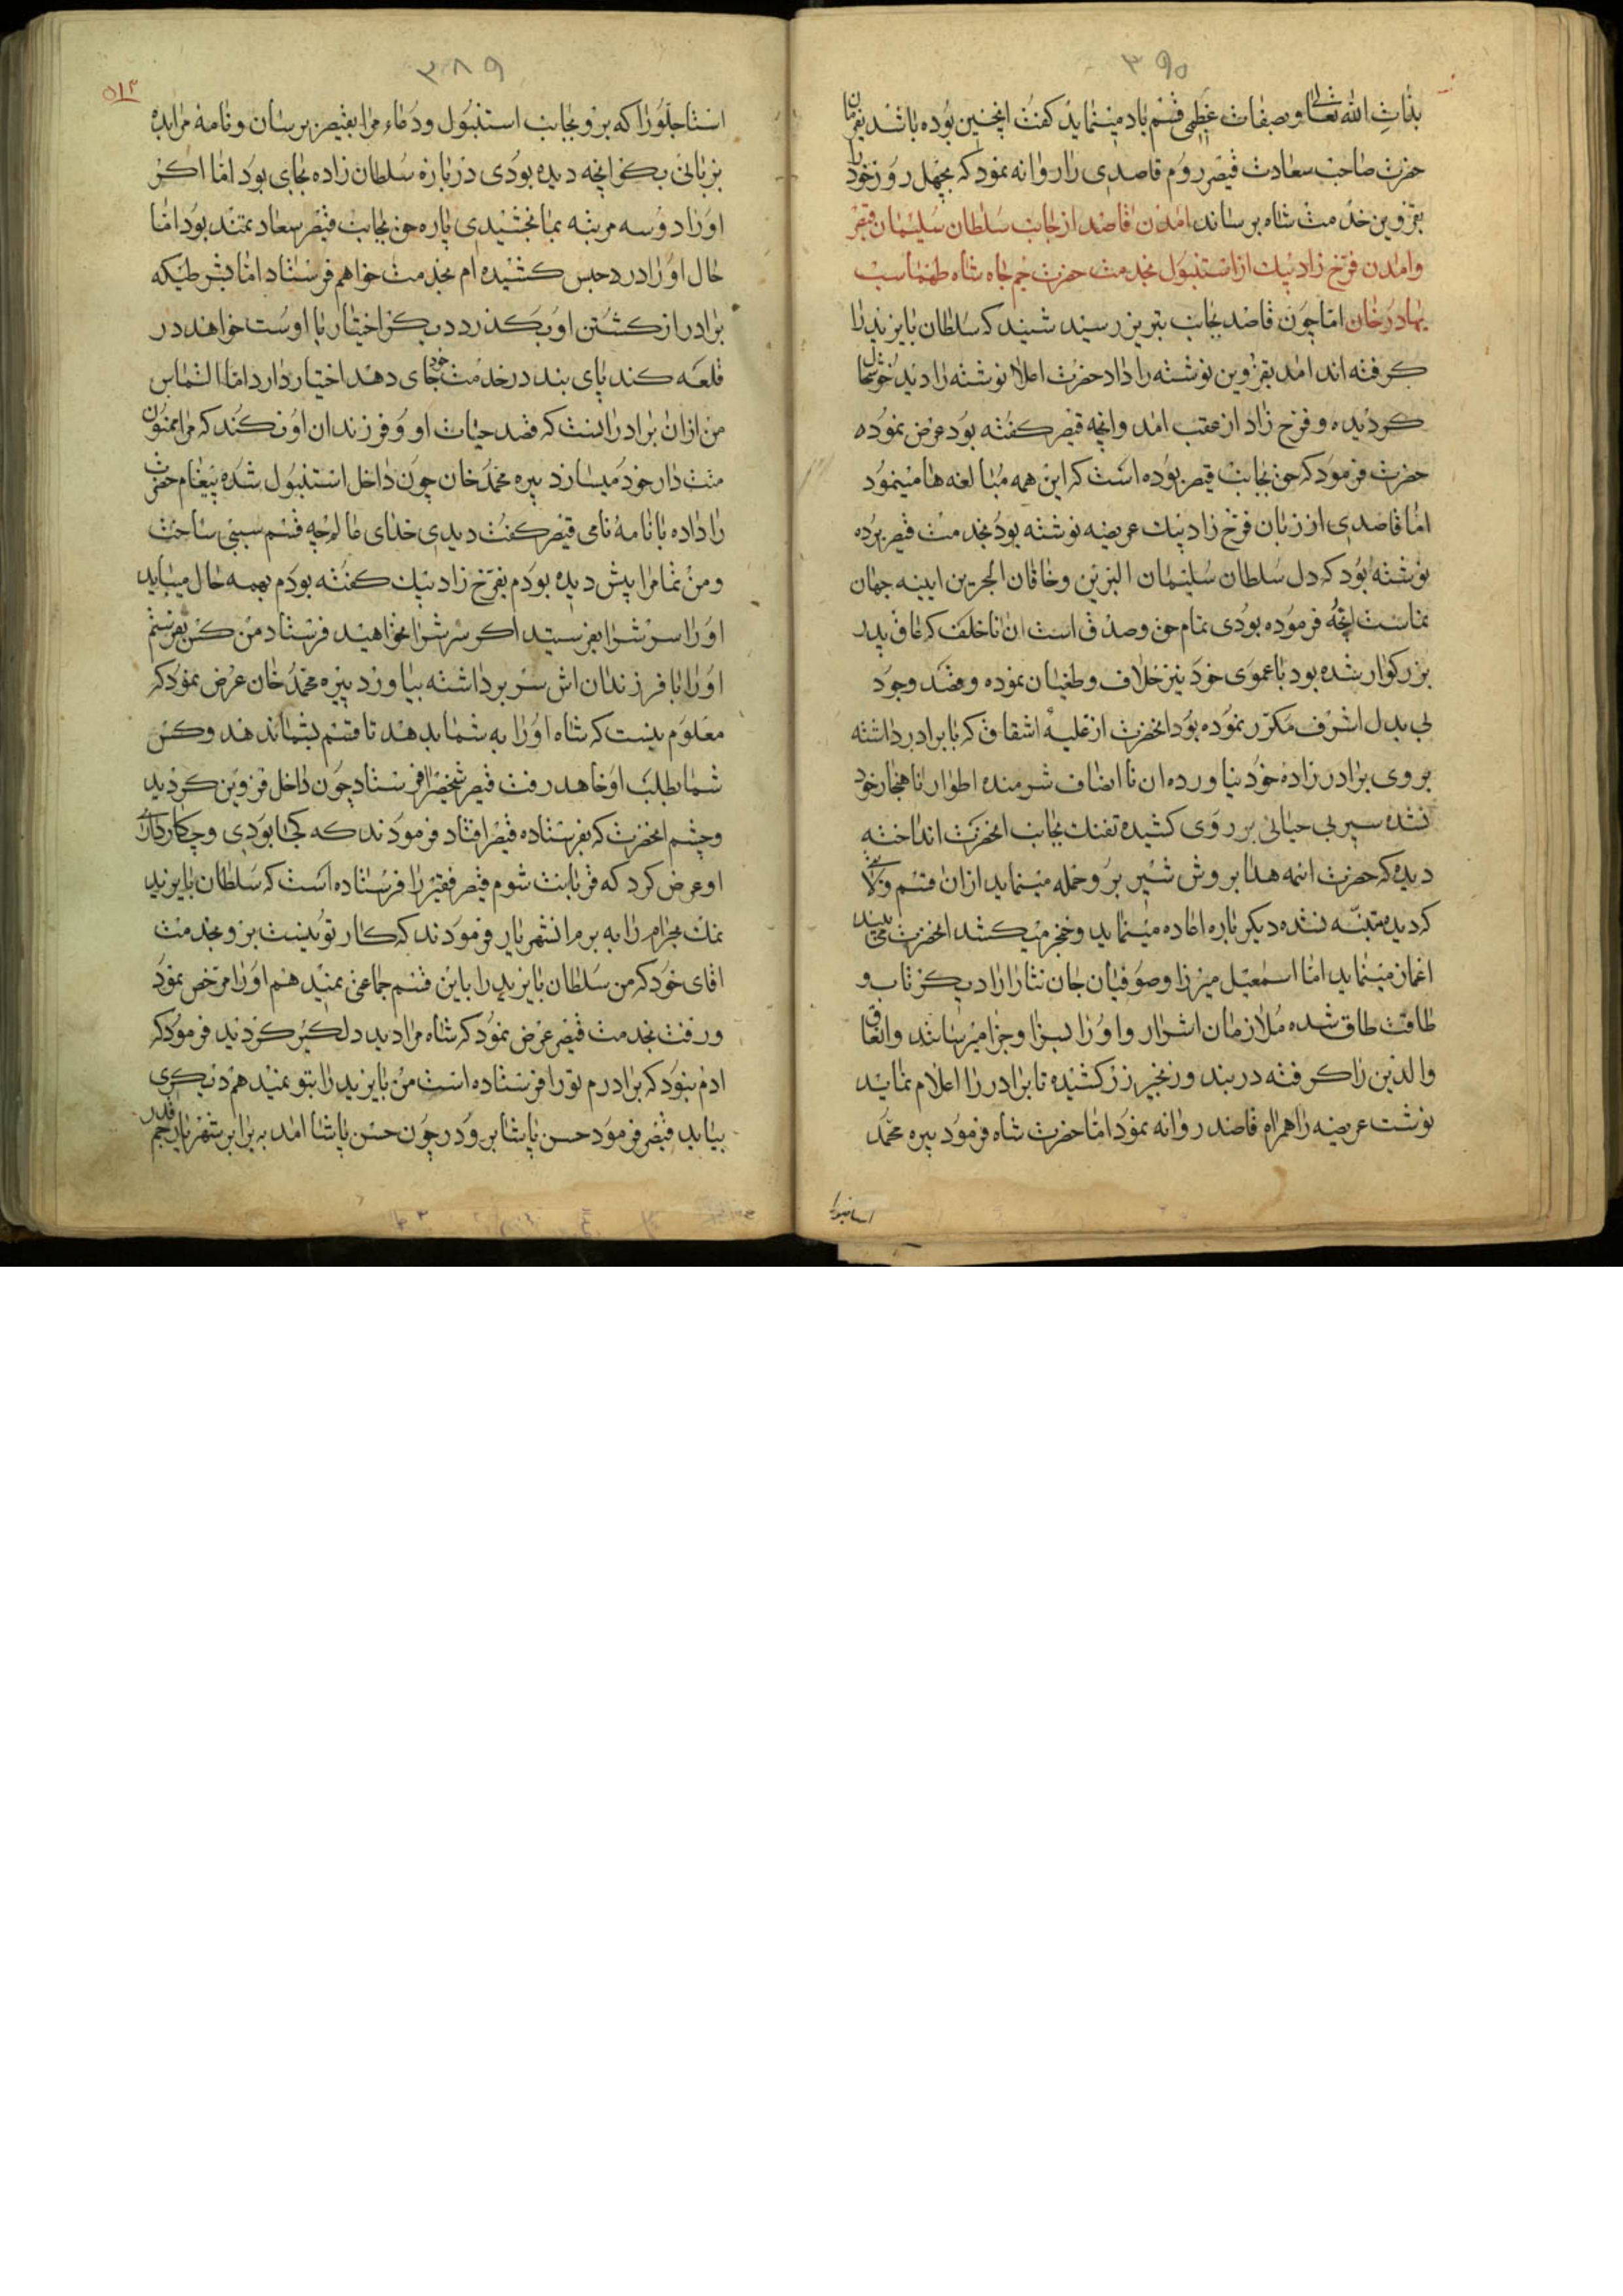 ۳۹۰
بذات الله تعالی و بصفات عظمی قسم یاد مینماید کفت اینچنین بوده باشد بفرما
حضرت صاحب سعادت قیصر روم قاصدی را روانه نمود که بچهل روز خود را
بقزوین خدمت شاه برساند امدن قاصد از جانب سلطان سلیمان قیصر
وامدن فرخ زاد بیک از استنبول بخدمت حضرت جم جاه شاه طهماسب
بهادر خان اما چون قاصد بجانب تبریز رسید شنید که سلطان بایزید را
کرفته اند امد بقزوین نوشته را داد حضرت اعلا نوشته را دید خوشحال
کردیده و فرخ زاد از عقب امد وانچه قیصر کفته بود عرض نموده
حضرت فرمود که حق بجانب قیصر بوده است که این همه مبالغه ها مینمود
اما قاصدی از زبان فرخ زاد بیک عریضه نوشته بود بخدمت قیصر برده
نوشته بود که دل سلطان سلیمان البرین و خاقان البحرین ایینه جهان
نماست انچه فرموده بودی تمام حق و صدق است ان ناخلف که عاق پدر
بزرکوار شده بود با عموی خود نیز خلاف و طغیان نموده و قصد وجود
بی بدل اشرف مکرر نموده بود انحضرت از غلبه اشفاق که با برادر داشته
بروی برادر زاده خود نیاورده ان نا انصاف شرمنده اطوار ناهنجار خود
نشده سپر بی حیائی بر روی کشیده تفنک بجانب انحضرت انداخته
دیده که حضرت ائمه هدا بروش شیر برو حمله مینماید ازان قسم
کردیده متنبه نشده دیکر باره اعاده مینماید و خنجر میکشد انحضرت می بیند
اغماز مینماید اما اسمعیل میرزا و صوفیان جان نثار را دیکر تاب و
طاقت طاق شده ملازمان اشرار و او را بسزا و جزا میرسانند و ان عاق
والدین را کرفته در بند و زنجیر زر کشیده تا برادر را اعلام نماید
نوشت عریضه را همراه قاصد روانه نمود اما حضرت شاه فرمود پیره محمد
۳۸۹
۵۱۳
استاجلو را که برو بجانب استنبول و دعاء مرا بقیصر برسان و نامه مرا بده
بزبانی بکو انچه دیده بودی در باره سلطان زاده بجای بود اما اکر
او را دو سه مرتبه بما بخشیدی پاره حق بجانب قیصر سعادتمند بود اما
حال او را در حبس کشیده ام بخدمت خواهم فرستاد اما بشرطیکه
برادر از کشتن او بکذرد دیکر اختیار با اوست خواهد در
قلعه کند پای بند در خدمت خود جای دهد اختیار دارد اما التماس
من ازان برادر اینست که قصد حیات او و فرزندان او نکند که مرا ممنون
منت دار خود میسازد پیره محمد خان چون داخل استنبول شده پیغام حضرت
را داده با نامه نامی قیصر کفت دیدی خدای عالم چه قسم سببی ساخت
و من تمام را پیش دیده بودم بفرخ زاد بیک کفته بودم بهمه حال میباید
او را سرش را بفرستید اکر سرش را نخواهید فرستاد من کس بفرستم
او را با فرزندان اش سر برداشته بیاورد پیره محمد خان عرض نمود که
معلوم نیست که شاه او را به شما بدهد تا قسم بشما ندهد و کس
شما بطلب او خاهد رفت قیصر شخصی را فرستاد چون داخل قزوین کردید
و چشم انحضرت که بفرستاده قیصر افتاد فرمودند که کجا بودی و چکار داری
او عرض کرد که قربانت شوم قیصر فقیر را فرستاده است که سلطان بایزید
نمک بحرام را به برم انشهریار فرمودند که کار تو نیست برو بخدمت
اقای خود که من سلطان بایزید را باین قسم جماعتی نمیدهم او را مرخص نمود
و رفت بخدمت قیصر عرض نمود که شاه مرا دید دلکیر کردید فرمود که
ادم نبود که برادرم تو را فرستاده است من بایزید را بتو نمیدهم دیکری
بیاید قیصر فرمود حسن پاشا برود چون حسن پاشا امد به برابر شهریار جم قدر